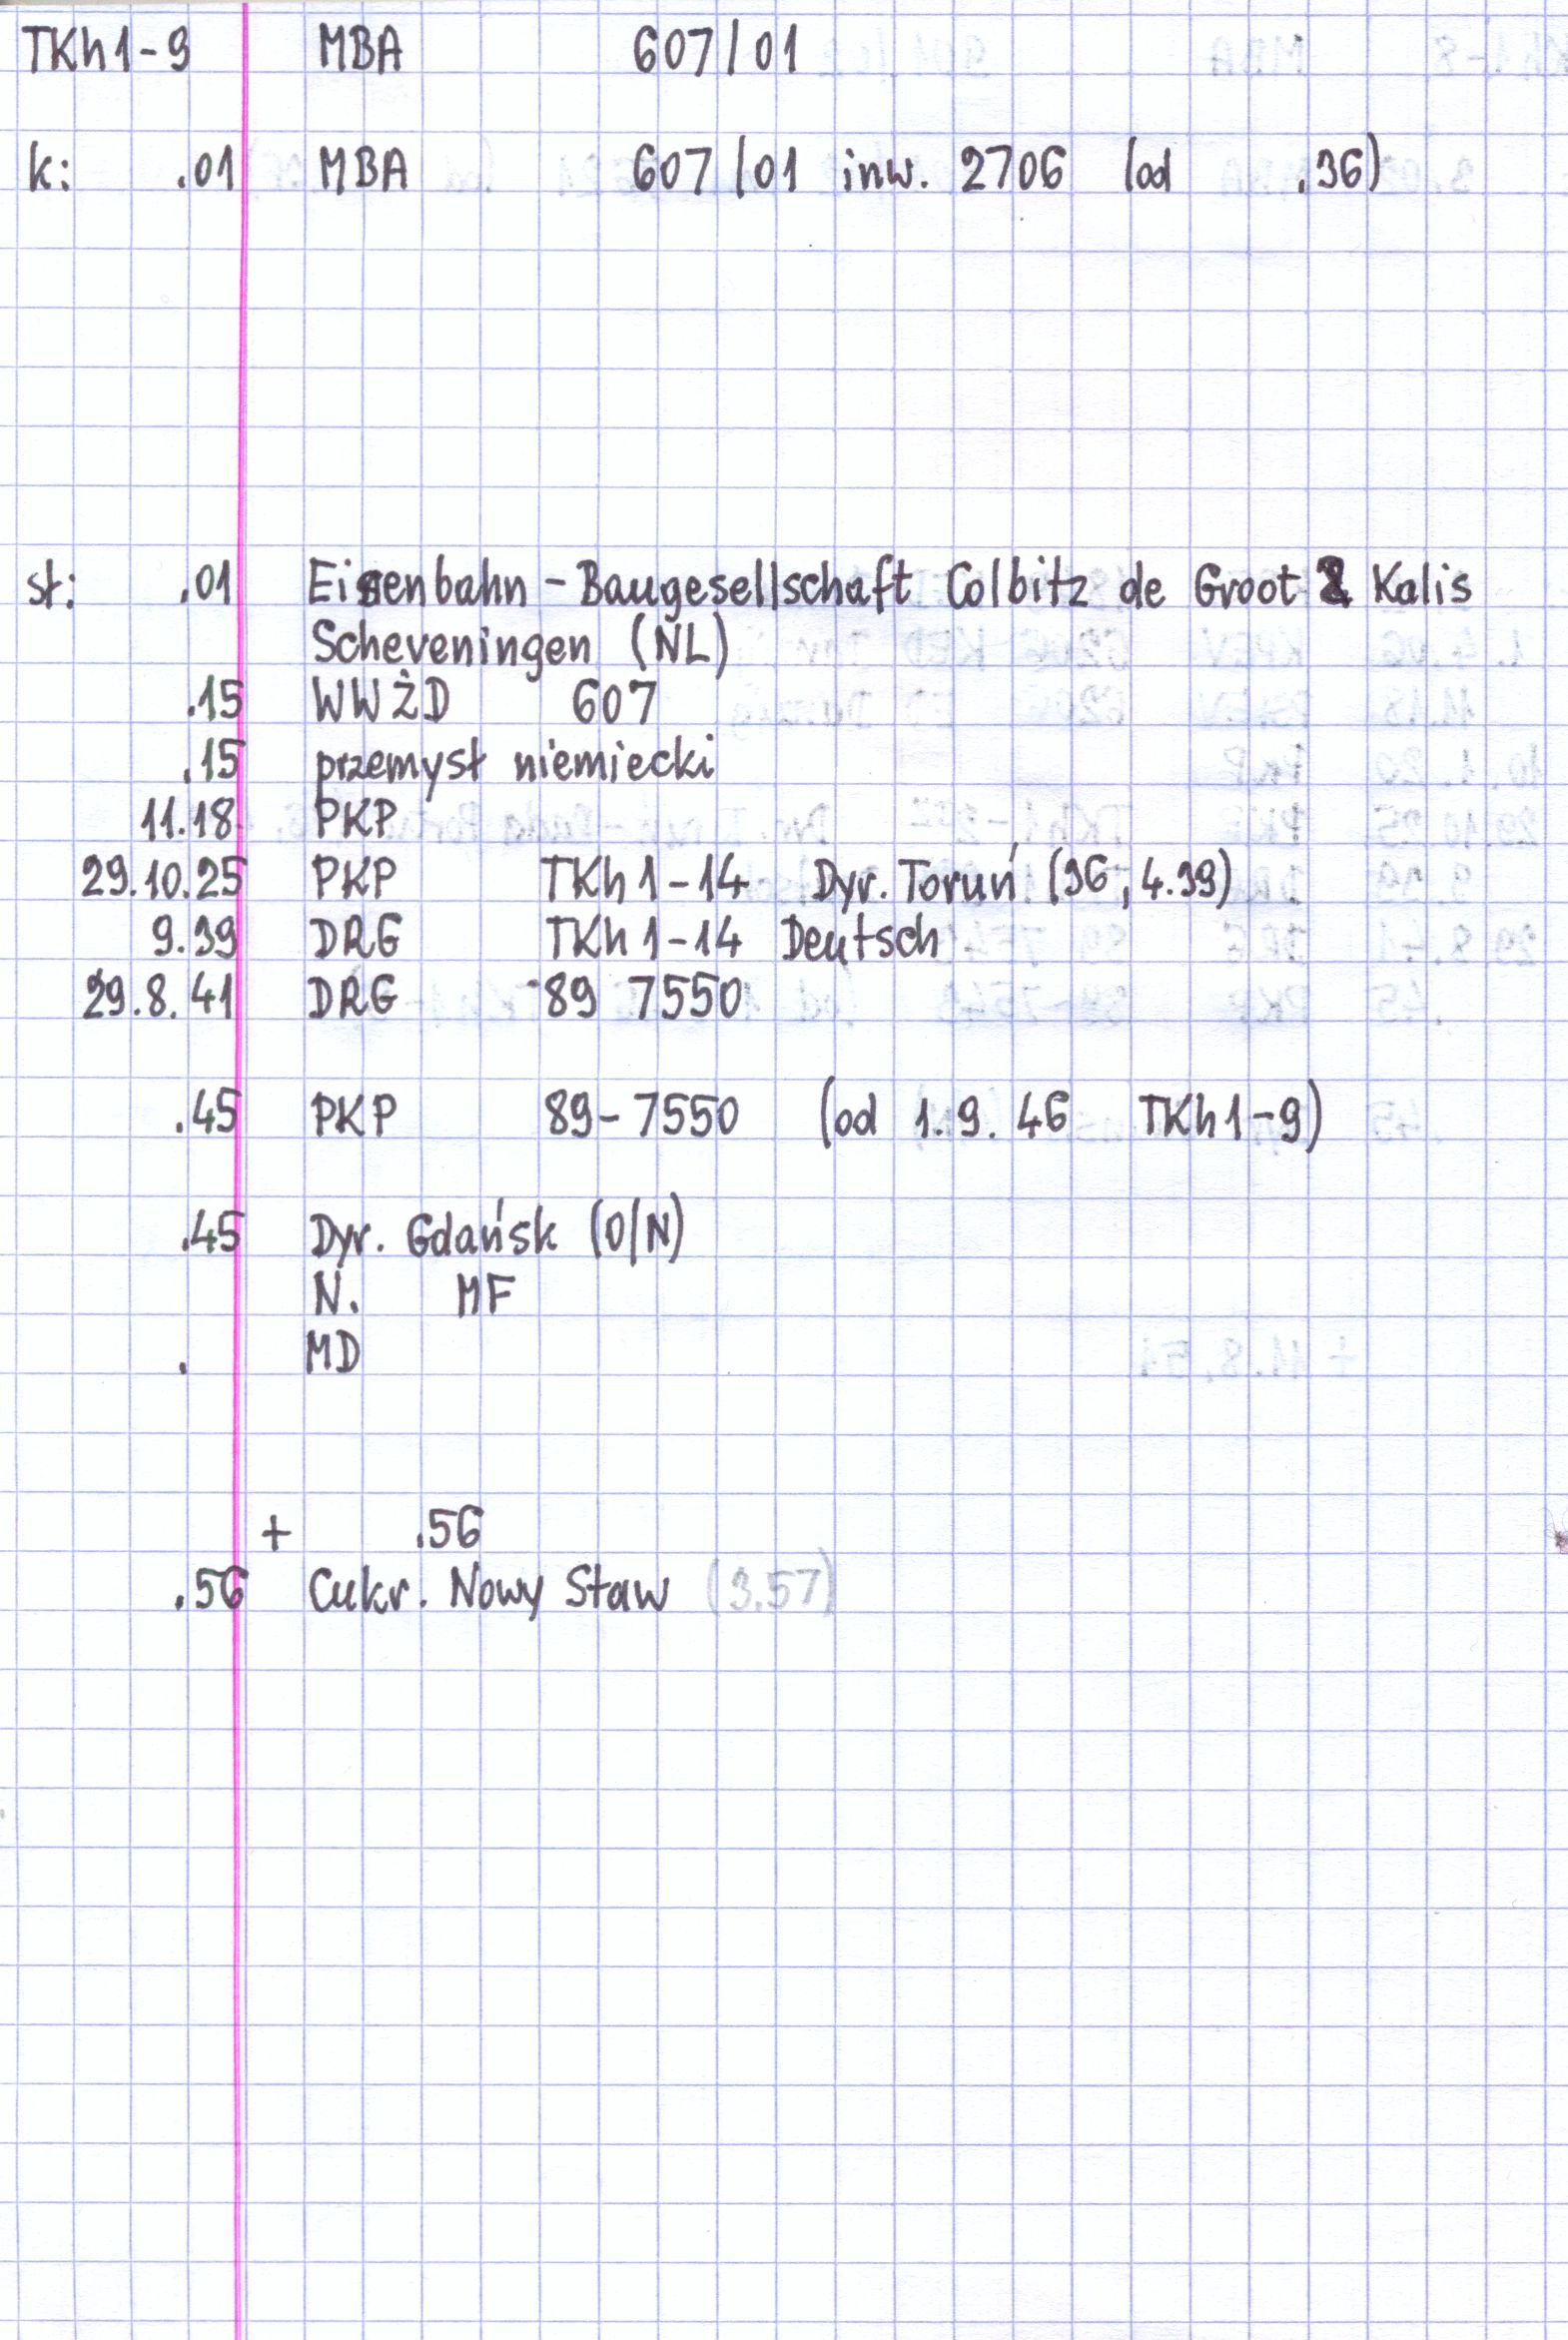 TKh1-9 MBA 607/01
k: .01 MBA 607/01 inw. 2706 (od .36)
st: .01 Eisenbahn-Baugesellschaft Colbitz de Groot & Kalis
Scheveningen (NL)
.15 WWŻD 607
.15 przemysł niemiecki
11.18 PKP
29.10.25 PKP TKh1-14 Dyr. Toruń (36, 4.39)
9.39 DRG TKh1-14 Deutsch
29.8.41 DRG 89 7550
.45 PKP 89-7550 (od 1.9.46 TKh1-9)
.45 Dyr. Gdańsk (O/N)
N. MF
. MD
+ .56
.56 Cukr. Nowy Staw (3.57)